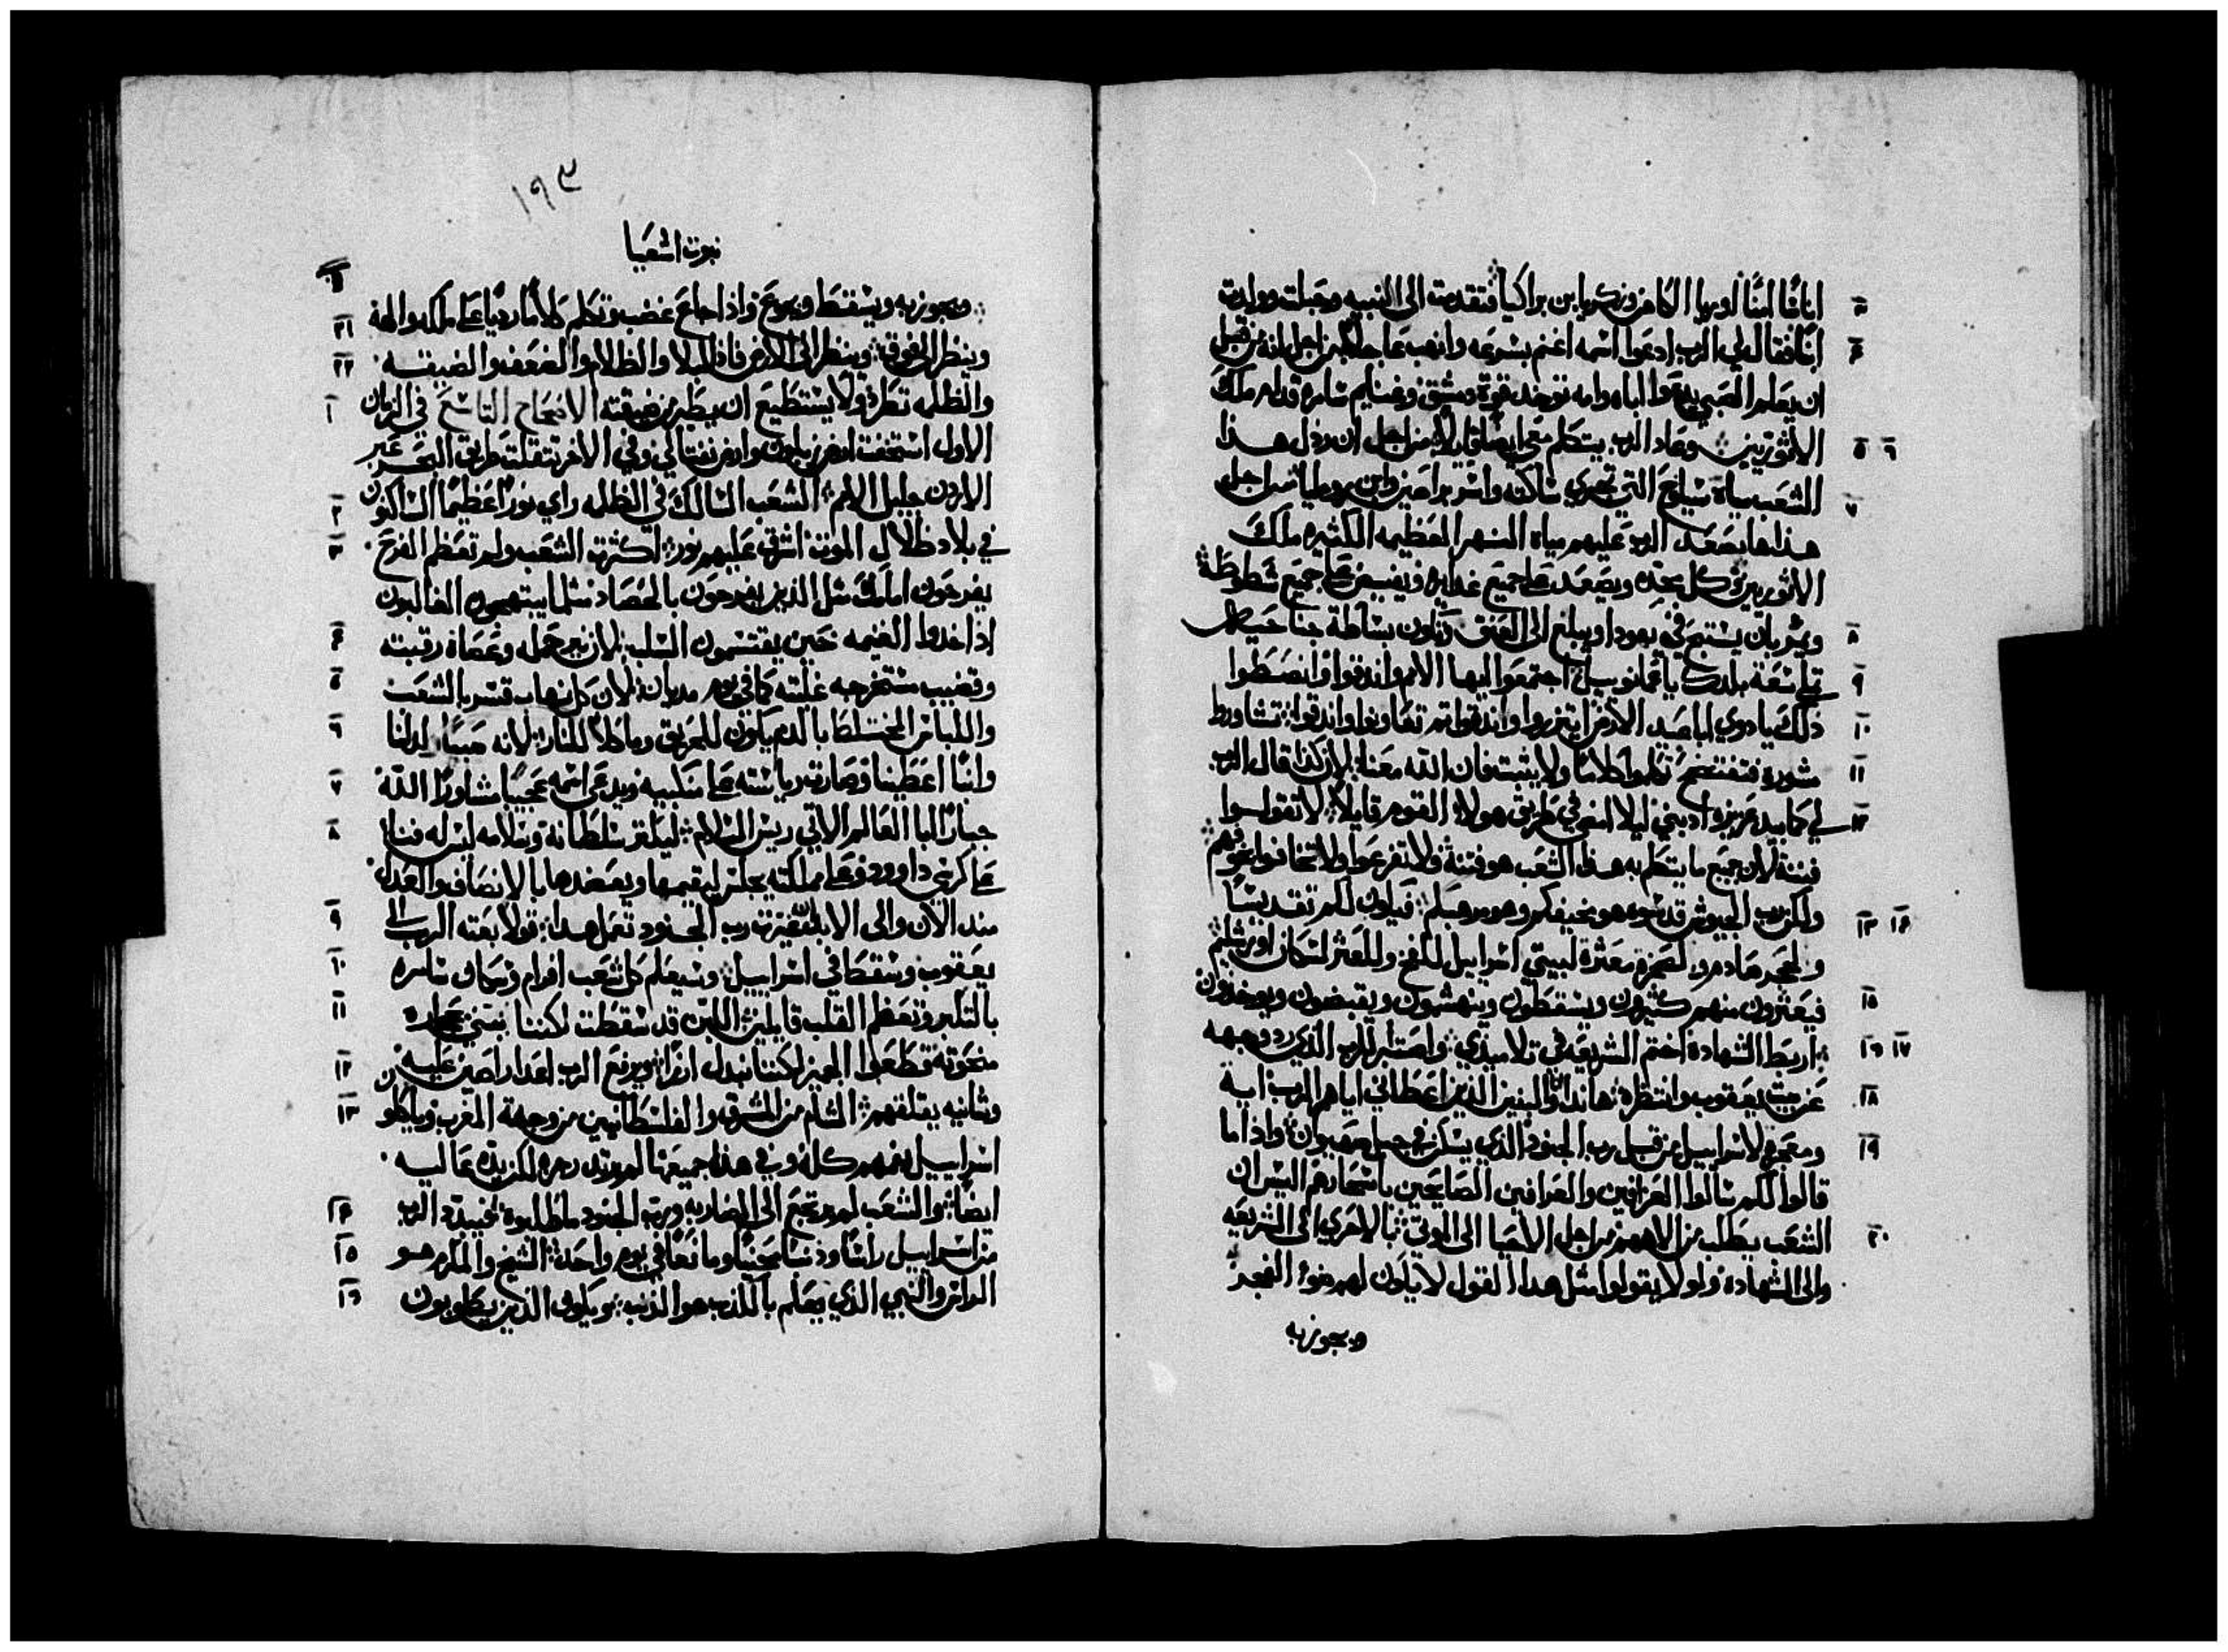 اناسًا امنًا اوريا الكاهن وزكريا ابن براكيا فتقدمت الى النبيه وحبلت وولدت
ابنًا فقال لي الرب ادعوا اسمه اغنم بسرعه وانهب عاجلاً من اجل انه من قبل
ان يعلم الصبي يدعوا اباه وامه توخذ قوة دمشق وغنايم سامره قدام ملك
الاثوريين وعاد الرب يتكلم معي ايضًا قايلاً من اجل ان رذل هذا
الشعب مياة سيلوح التي تجري ساكته واسر براصين وابن روملياس من اجل
هذا ها يصعد الرب عليهم مياة النهر العظيمه الكثيره ملك
الاثوريين وكل مجده ويصعد على جميع غدايره ويفيض على جميع شطوطه
ويسربان يستبح في يهودا ويبلغ الى العنق ويكون بساطة جناحيه
على سعة بلدك يا عمانوييل اجتمعوا ايها الامم واندقوا وانصطوا
ذلك يا دوي اباعيد الارض اتزروا واندقوا تم تقاووا واندقوا تشاوروا
مشوره فتفتضح تكلموا كلامًا ولا يثبت فان الله معنا لان كذا قال الرب
لي كما بيد عزيزه ادبني ليلا امضي في طريق هولاء القوم قايلاً لا تقولوا
فتنة لان جميع ما يتكلم به هذا الشعب هو فتنة ولا تفزعوا ولا تخافوا خوفهم
ولكن رب الجيوش قدسوه هو مخيفكم وهو مرهبكم فيكون لكم تقديسًا
ولحجر صادم ولصخرة معثرة لبيتي اسراييل للفخ وللعثر لسكان اورشليم
فيعثرون منهم كثيرون ويسقطون وينهشمون ويقبضون ويوخذون
اربط الشهادة اختم الشريعه في تلاميذي واصتبر للرب الذي رد وجهه
عن بيت يعقوب وانتظره هاندا انا والبنين الذين اعطاني اياهم الرب اية
ومعجزة لاسراييل من قبل رب الجنود الذي يسكن في جبل صهيون واذا ما
قالوا لكم سالوا العرافين والعرافين الصايحين باسحارهم اليس ان
الشعب يطلب من الاههم من اجل الاحيا الى الموتى بالاحري الى الشريعه
والى الشهادة ولو لا يقولوا مثل هدا القول لا يكون لهم ضوء الفجر
ويجوز به
١٩٣
نبوت اشعيا
ويجوز به ويسقط ويجوع واذا جاع غضب وتكلم كلامًا رديًا على ملكه والهه
وينظر الى فوق وينظر الى الارض فاذا البلا والظلام والضعف والضيقه
والظلمه تطرده ولا يستطيع ان يطير من ضيقته الاصحاح التاسع في الزمان
الاول استخفت ارض زبلون وارض نفتالي وفي الاخر تثقلت طريق البحر عبر
الاردن جليل الامم الشعب السالك في الظلمه راي نورًا عظيمًا الساكنون
في بلاد ظلال الموت اشرق عليهم نور اكثرت الشعب ولم تعظم الفرح
يفرحون امامك مثل الذين يفرحون بالحصاد مثلما يبتهجون الغالبون
اذا اخدوا الغنيمه حين يقتسمون السلب لان نير حمله وعصاة رقبته
وقضيب مستخرجه غلبته كما في يوم مديان لان كل نهاب قسر بالشعث
واللباس المختلط بالدم يكون للحريق وماكلاً للنار لانه صبيًا ولد لنا
وابنًا اعطينا وصارت رياسته على منكبيه ويدعى اسمه عجيبًا مشاورًا الله
جبارًا ابا العالم الاتي ريس السلام ليكثر سلطانه وسلامه ليس له فنا
على كرسي داوود وعلى مملكته يجلس ليقيمها ويعضدها بالانصاف والعدل
مند الان والى الابد غيرة رب الجنود تعمل هدا قولا بعته الرب الى
يعقوب وسقط في اسراييل وسيعلم كل شعب افرام وسكان سامره
بالتكبر وتعظم القلب قايلين اللبن قد سقطت لكننا نبني بحجارة
منحوته قطعوا الجميز لكننا نبدل ارزًا ويرفع الرب اعدا راصين عليه
وشانيه يقلقهم الشام من المشرق والفلسطانيين من وجهة المغرب وياكلون
اسراييل بفمهم كله وفي هذا جميعها لم يرتد رجزه لكن يده عاليه
ايضًا والشعب لم يرتجع الى الضاربه ورب الجنود ما طلبوه فيبيد الرب
من اسراييل راسًا وذنبًا محنيًا ومانعًا في يوم واحد الشيخ والمكرم هو
الراس والنبي الذي يعلم بالكذب هو الذنب ويكون الذين يطوبون